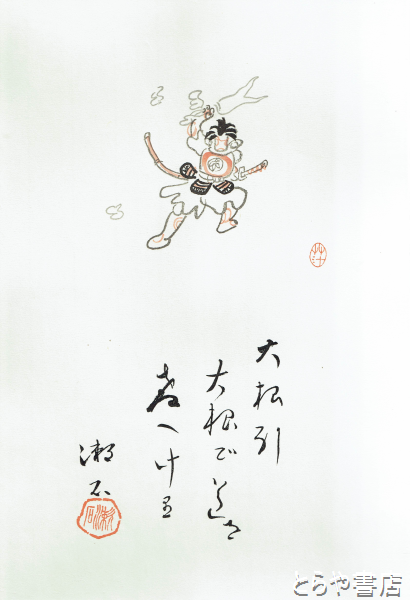 大根引
大根で道を
教へけり
漱石
漱石
とらや書店